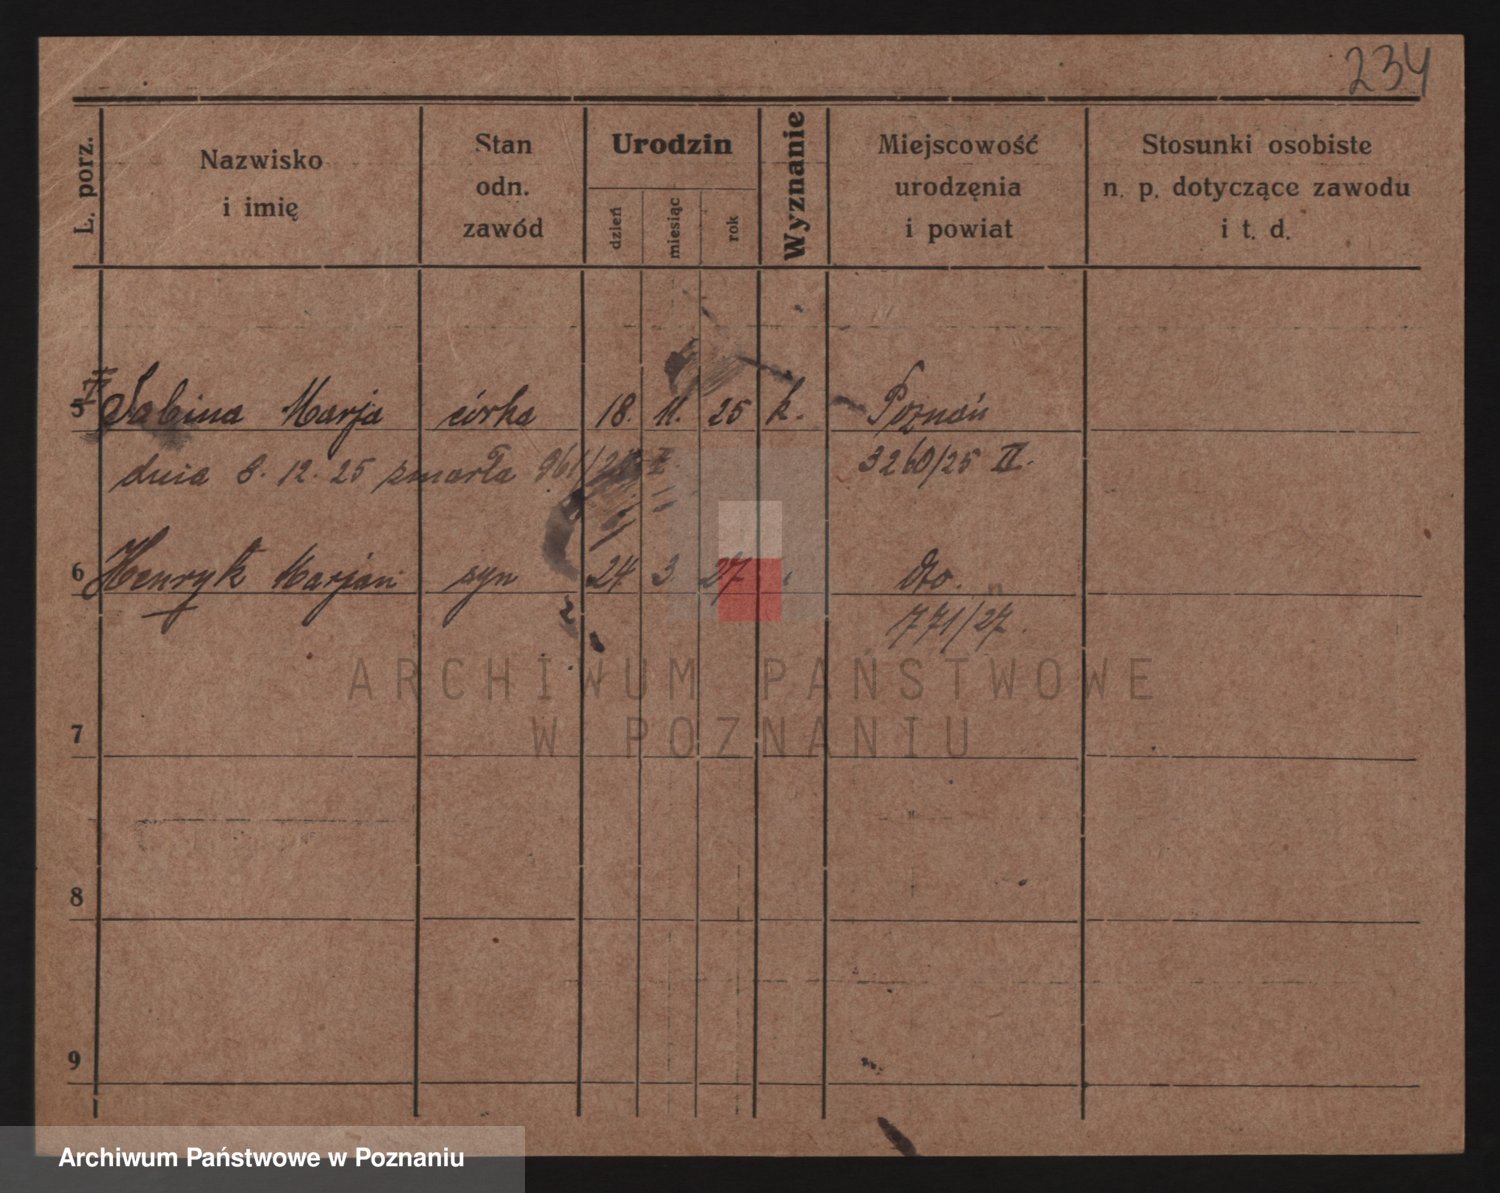 234
L. porz.
Nazwisko
i imię
Stan
odn.
zawód
Urodzin
dzień
miesiąc
rok
Wyznanie
Miejscowość
urodzęnia
i powiat
Stosunki osobiste
n. p. dotyczące zawodu
i t. d.
5 Sabina Marja córka 18. 11. 25 k. Poznań
dnia 8. 12. 25 zmarła
3260/25 II.
6 Henryk Marjan syn 24 3 27 dto.
771/27.
ARCHIWUM PAŃSTWOWE
W POZNANIU
7
8
9
Archiwum Państwowe w Poznaniu